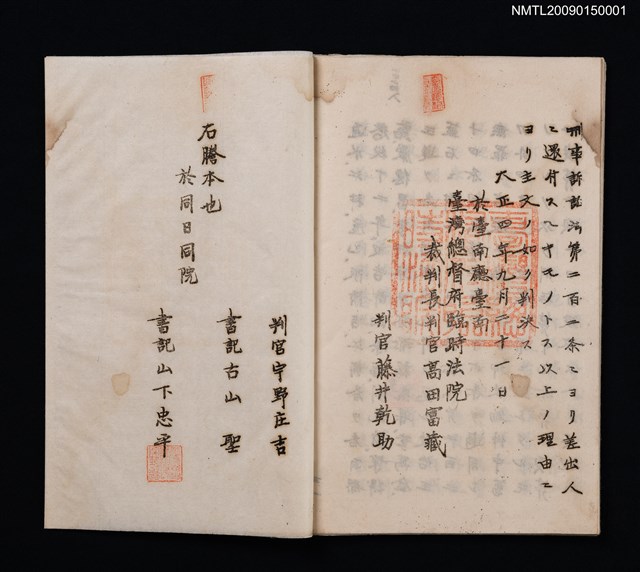 NMTL20090150001
刑事訴訟法第二百二条ニヨリ差出人
ニ還付スヘキモノトス以上ノ理由ニ
ヨリ主文ノ如ク判決ス
大正四年九月二十一日
於臺南廳臺南
臺灣總督府臨時法院
裁判長判官高田富藏
判官藤井乾助
判官宇野庄吉
書記古山聖
右謄本也
於同日同院
書記山下忠平